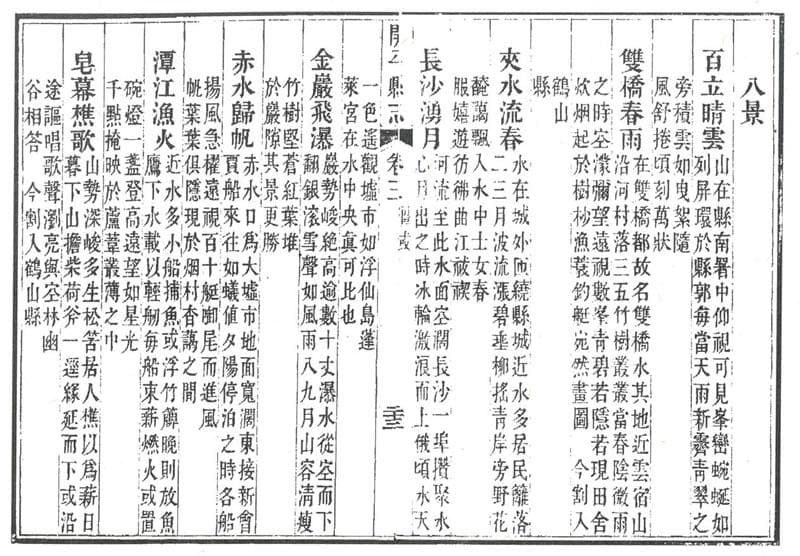 八景
百立晴雲
山在縣南署中仰視可見峯巒蜿蜒如
列屏環於縣郭每當天雨新霽青翠之
旁積雲如曳絮隨
風舒捲頃刻萬狀
雙橋春雨
在雙橋都故名雙橋水其地近雲宿山
沿河村落三五竹樹叢叢當春陰微雨
之時空濛彌望遠視數峯青碧若隱若現田舍
炊烟起於樹杪漁蓑釣艇宛然畫圖 今割入
鶴山
縣
夾水流春
水在城外匝繞縣城近水多居民籬落
二三月波流漲碧垂柳搖青岸旁野花
醃藹飄入水中士女春
服嬉遊彷彿曲江祓禊
長沙湧月
河流至此水面空濶長沙一埠攢聚水
心月出之時冰輪激浪而上俄頃水天
開平縣志
卷三
二十三
一色遙觀墟市如浮仙島蓬
萊宮在水中央眞可比也
金巖飛瀑
巖勢峻絶高逾數十丈瀑水從空而下
翻銀滚雪聲如風雨八九月山容清瘦
竹樹堅蒼紅葉堆
於巖隙其景更勝
赤水歸帆
赤水口爲大墟市地面寬濶東接新會
賈船來往如蟻値夕陽停泊之時各船
揚風急櫂遠視百十艇啣尾而進風
帆葉葉俱隱現於烟村杳藹之間
潭江漁火
近水多小船捕魚或浮竹簰晚則放魚
鷹下水載以輕舠每船束薪燃火或置
碗燈一盞登高遠望如星光
千點掩映於蘆葦叢薄之中
皂幕樵歌
山勢深峻多生松筶居人樵以爲薪日
暮下山擔柴荷斧一逕緣延而下或沿
途謳唱歌聲瀏亮與空林幽
谷相答 今割入鶴山縣